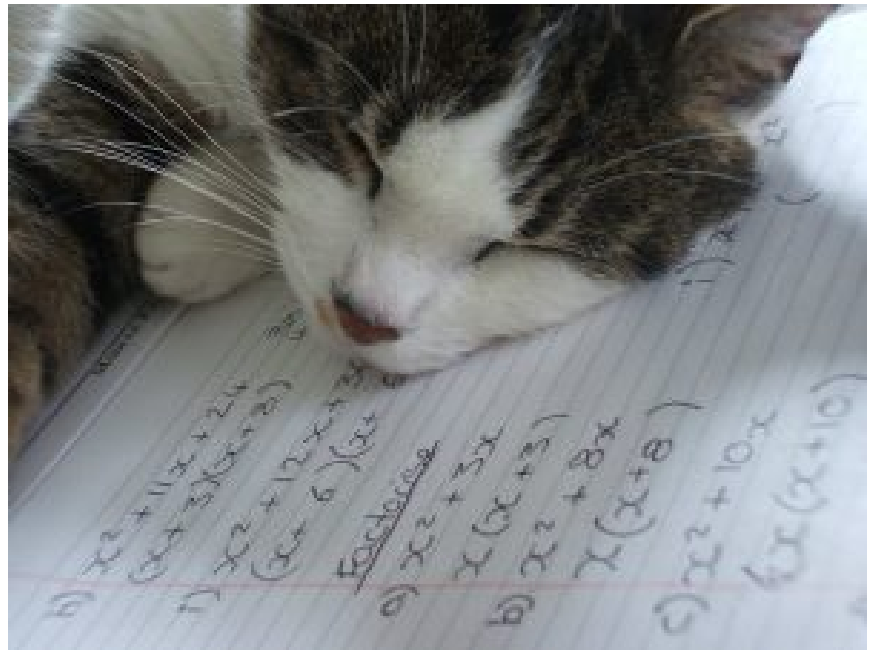 h) x² + 11x + 24
(x + 3)(x + 8)
i) x² + 12x + 3
(x + 6)(x +
Factorise
a) x² + 3x
x(x + 3)
b) x² + 8x
x(x + 8)
c) x² + 10x
x(x + 10)
i)